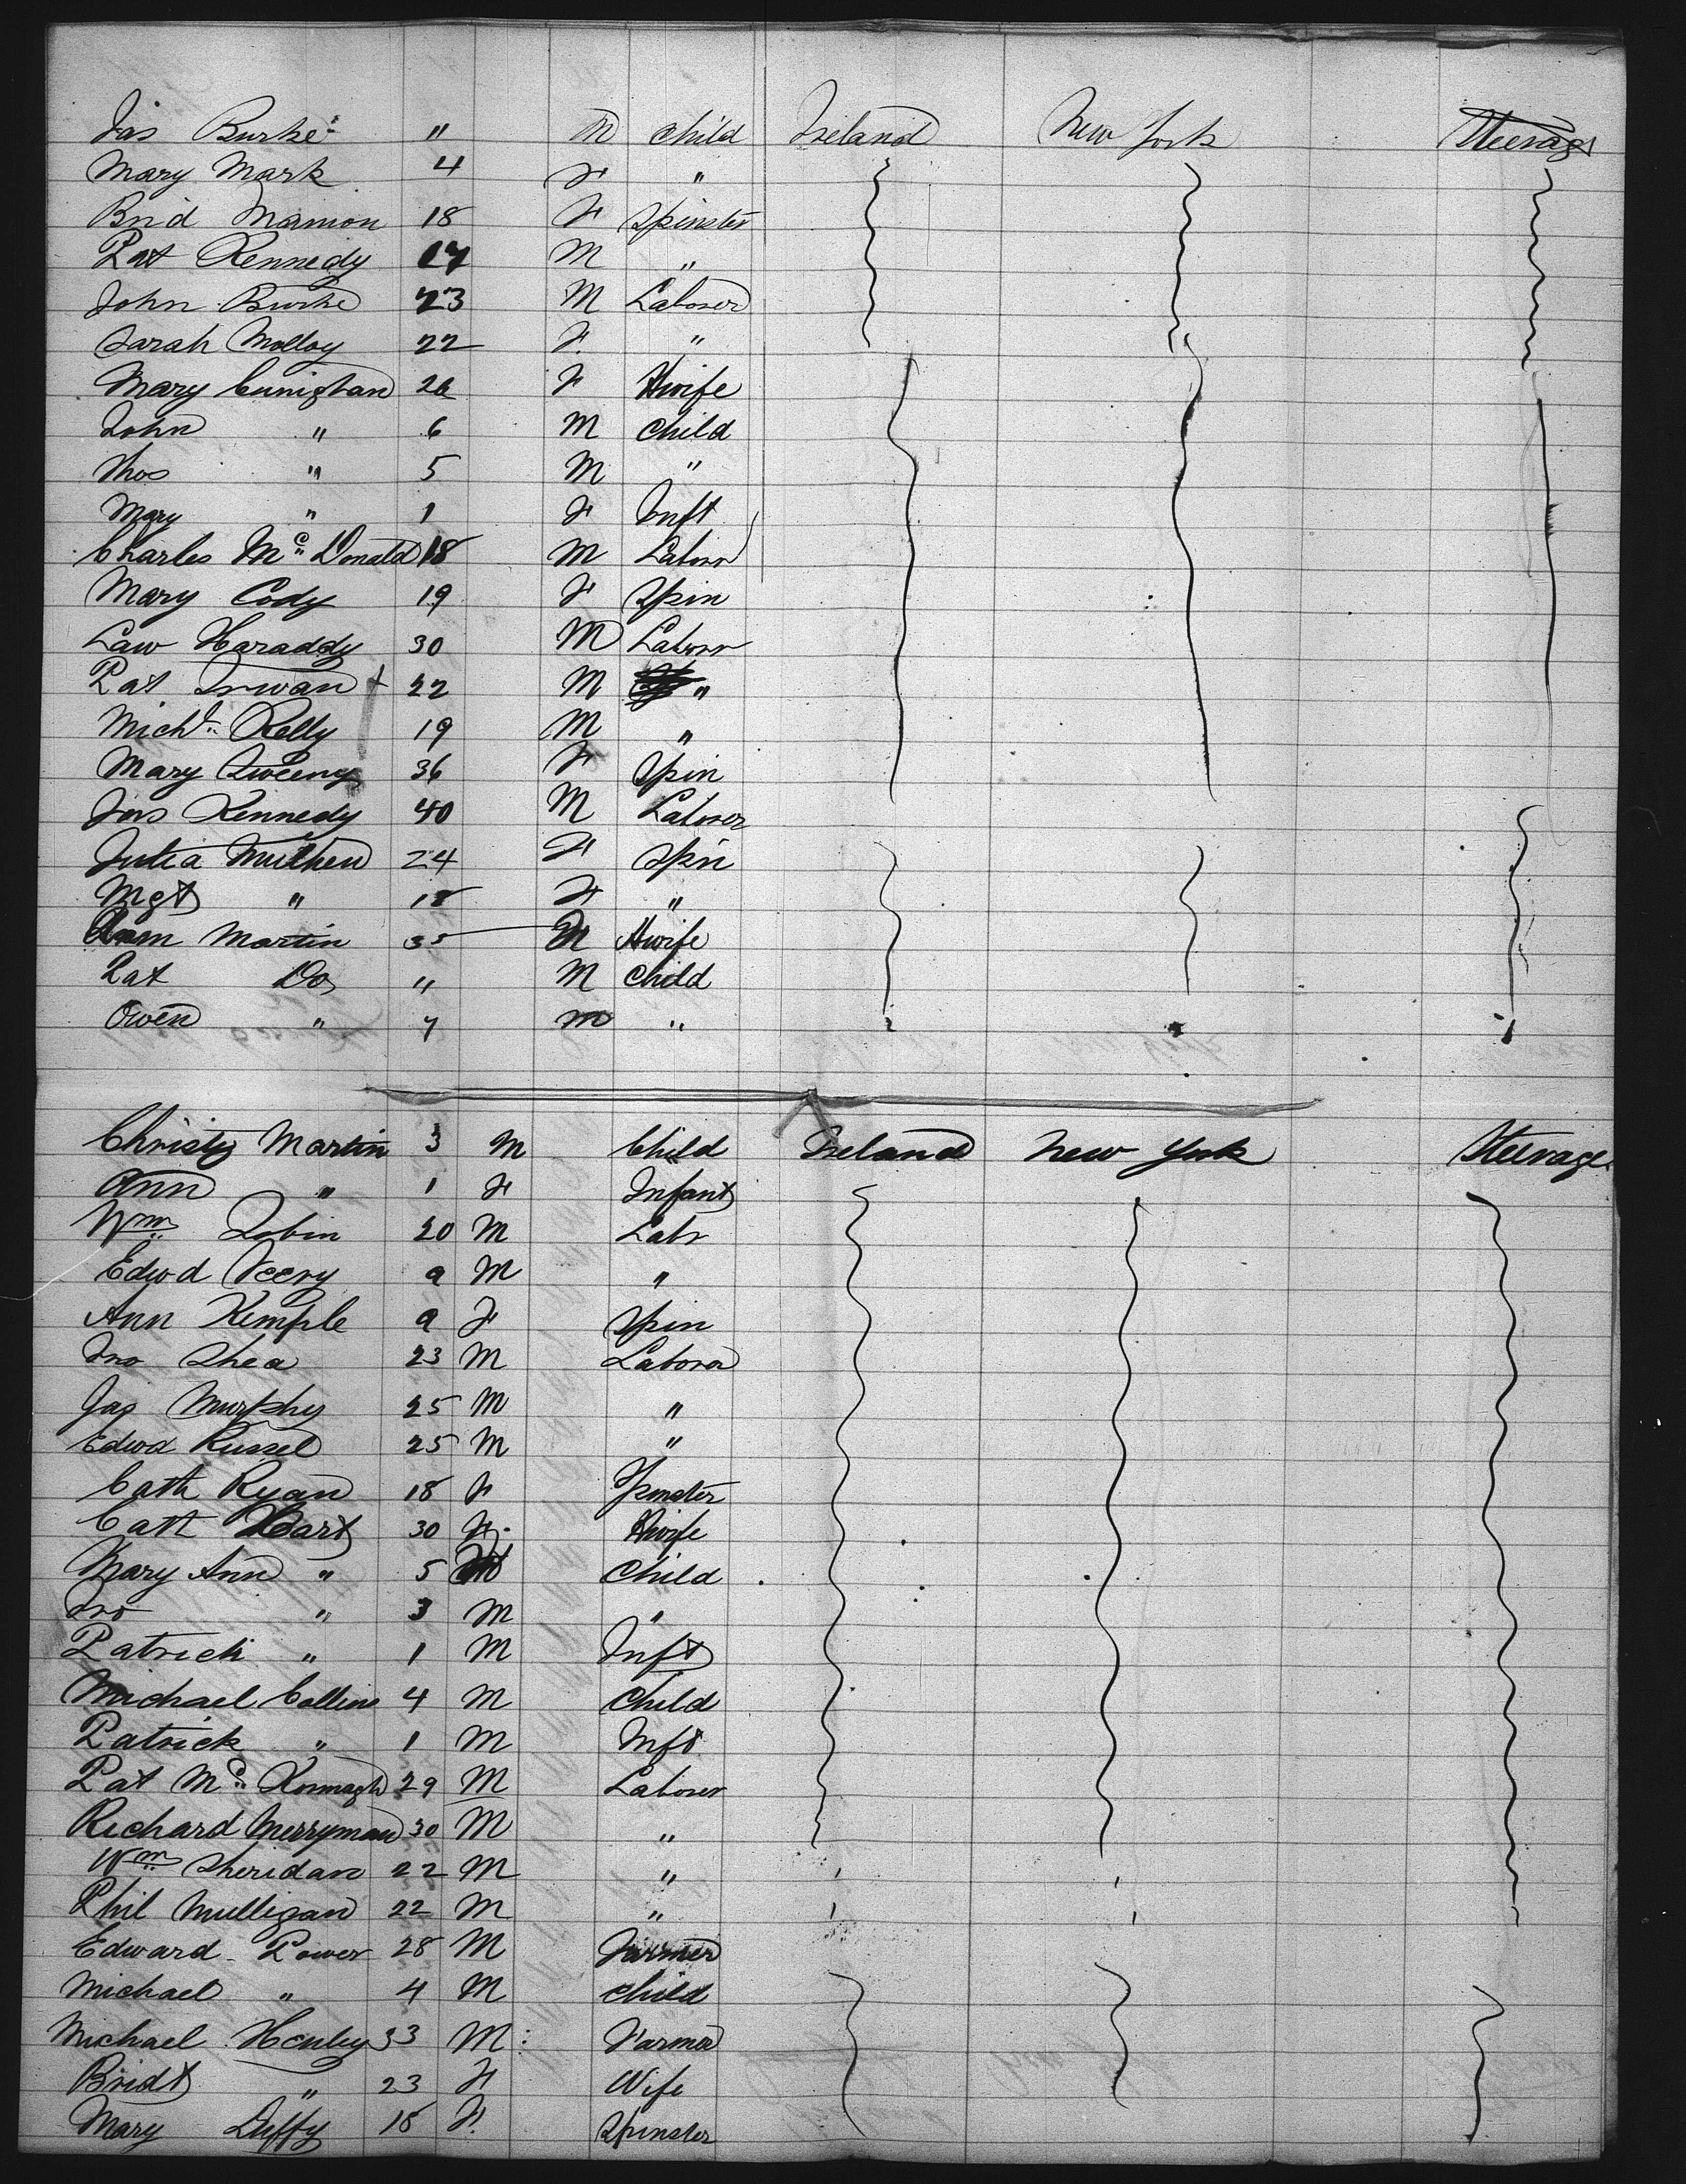 Jas Burke " M child Ireland New York Steerage
Mary Mark 4 F "
Brid Mannion 18 F Spinster
Pat Kennedy 17 M "
John Burke 23 M Laborer
Sarah Molloy 22 F "
Mary 26 F Hwife
John " 6 M child
Thos " 5 M "
Mary " 1 F Inft
Charles Mc Donald 18 M Laborr
Mary Cody 19 F Spin
Law Haraddy 30 M Laborr
Pat Irwan + 22 M "
Michl Kelly 19 M "
Mary Sweeny 36 F Spin
Jas Kennedy 40 M Laborer
Julia Mulhew 24 F Spin
Mgt " 18 F "
Martin 35 Hwife
Pat Do " M child
Owen " 7 M "
Christy Martin 3 M Child Ireland New York Steerage
Ann " 1 F Infant
Wm Tobin 20 M Labr
Edwd a M "
Ann Kemple a F Spin
Jno Shea 23 M Laboror
Jas Murphy 25 M "
Edwd Russel 25 M "
Cath Ryan 18 F Spinster
Cath Hart 30 F Hwife
Mary Ann " 5 Child
Jno " 3 M "
Patrick " 1 M Inft
Michael Collins 4 M Child
Patrick " 1 M Inft
Pat Mc 29 M Laborer
Richard Merryman 30 M "
Wm Sheridan 22 M "
Phil Mulligan 22 M "
Edward Power 28 M Farmer
Michael " 4 M child
Michael Henley 33 M Farmer
Bridt " 23 F Wife
Mary Duffy 18 F Spinster